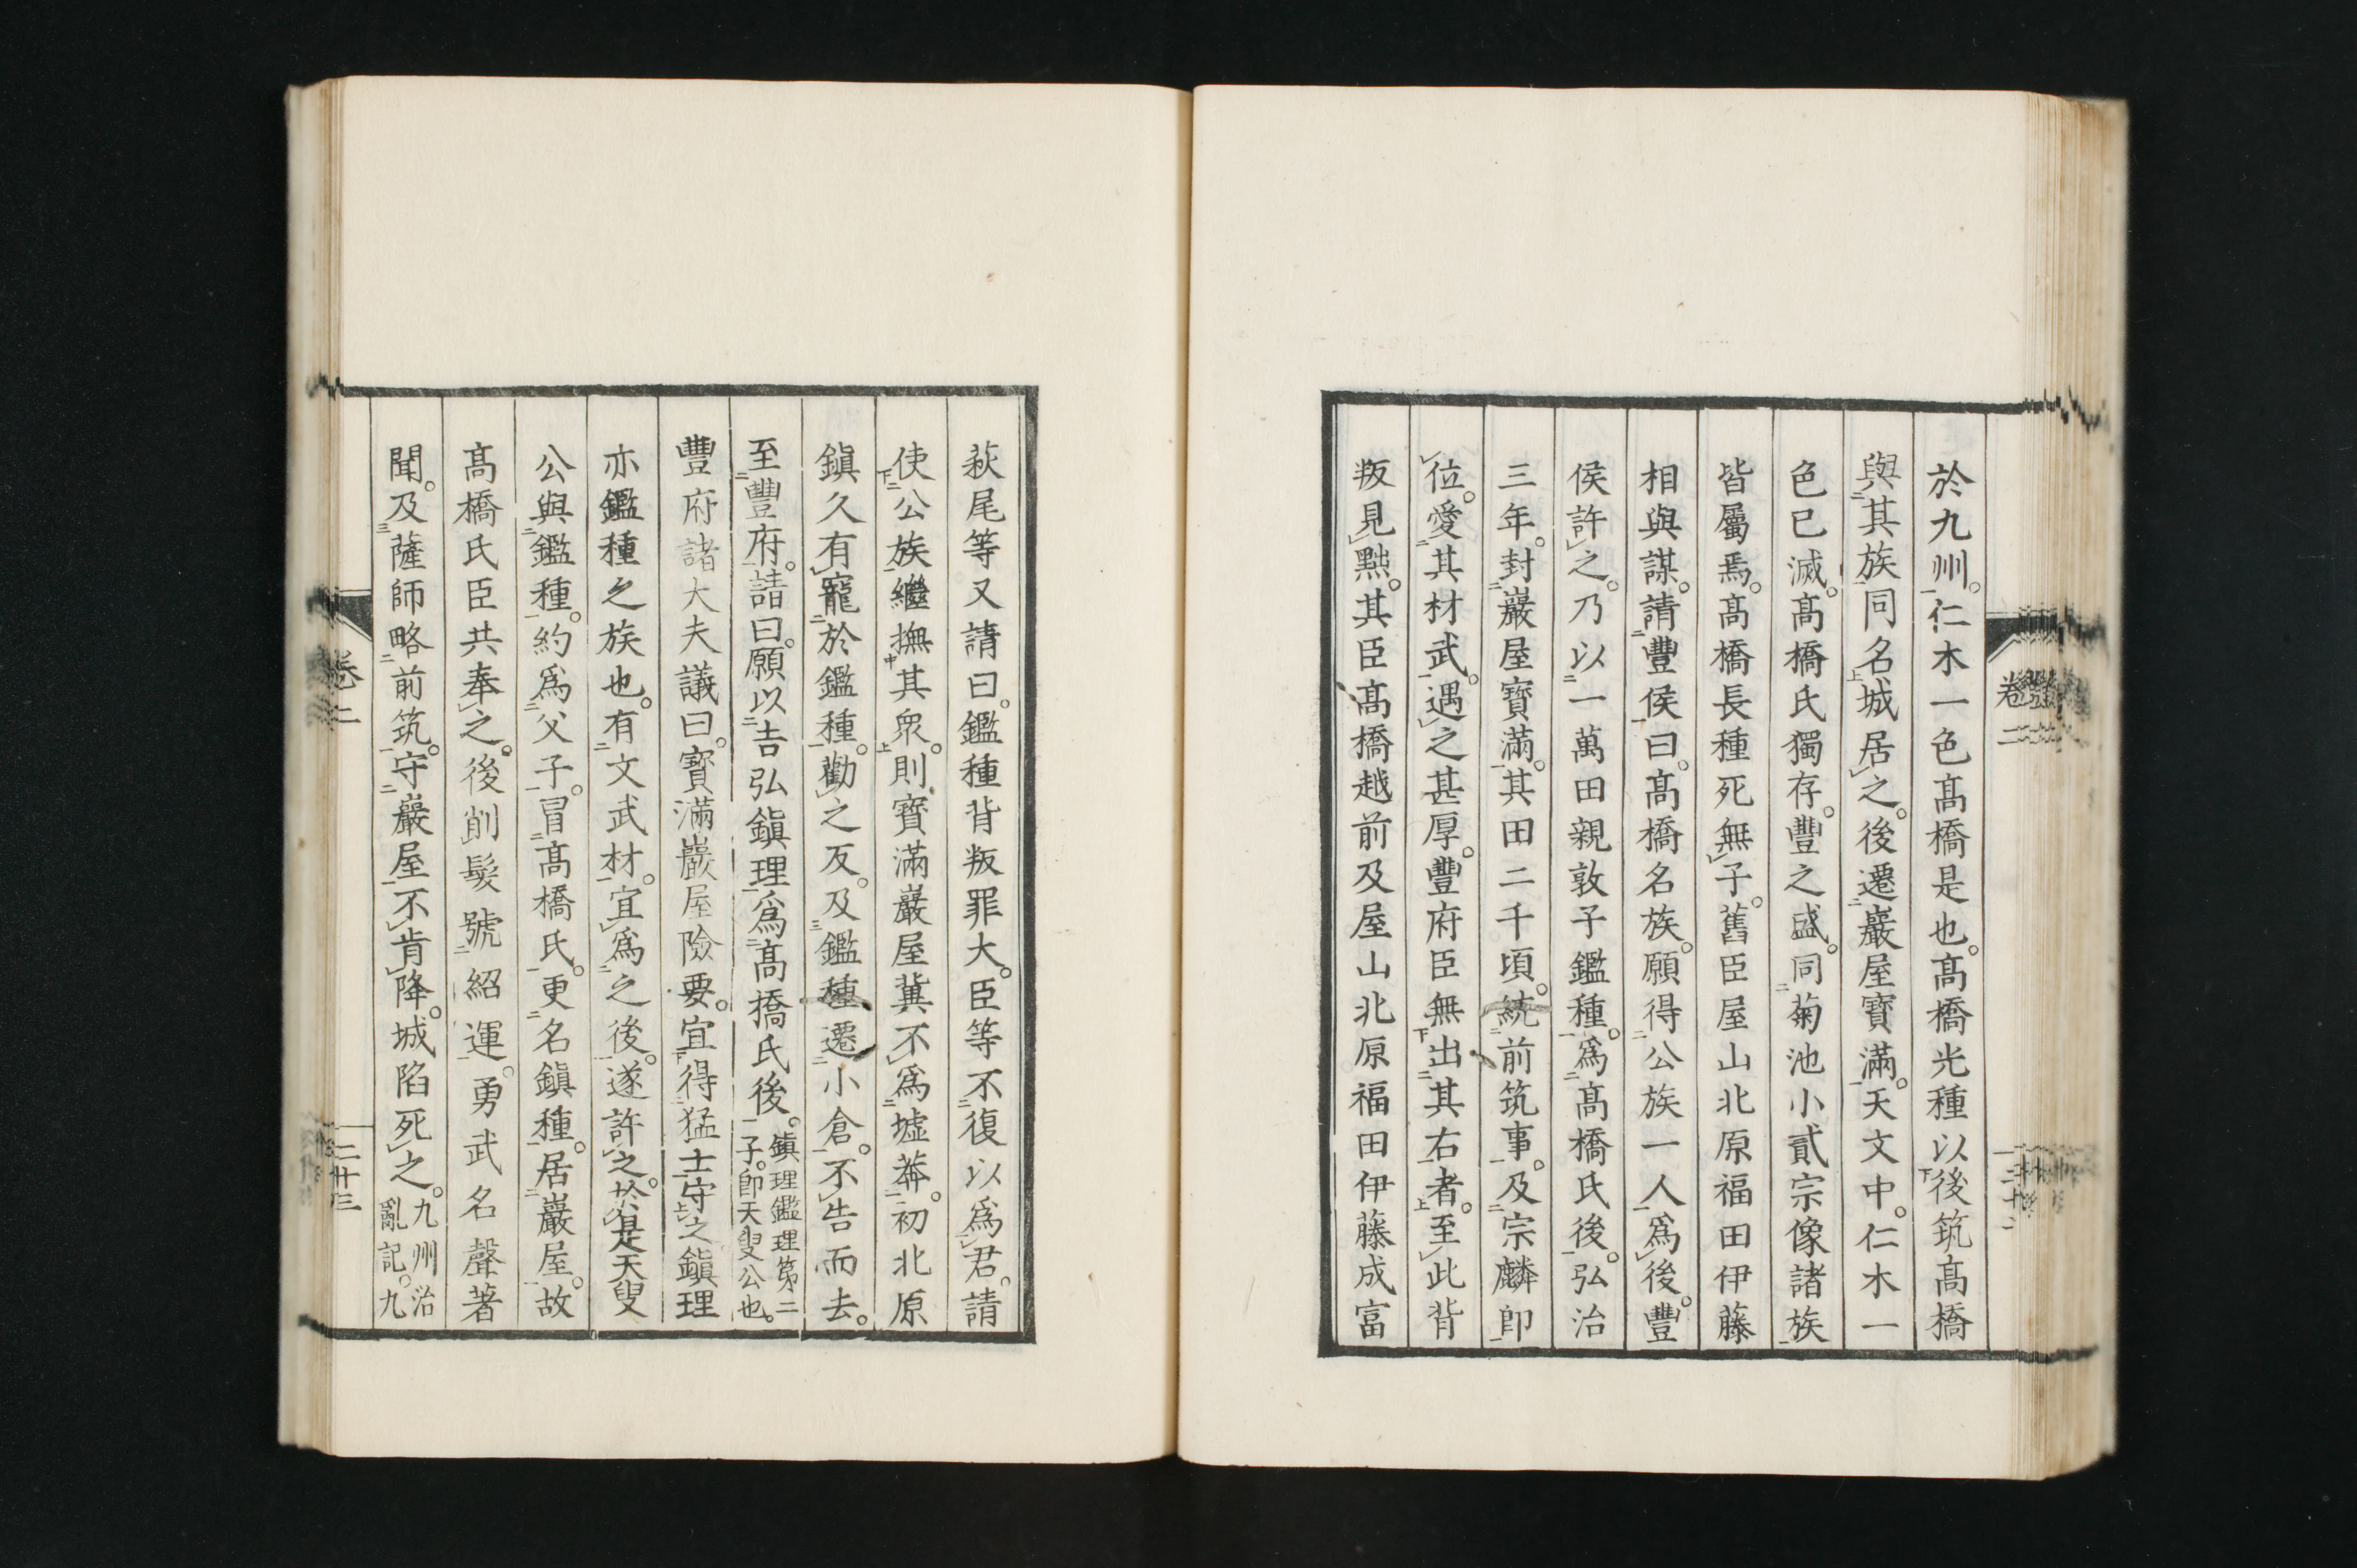 於九州。仁木一色髙橋是也。髙橋光種以後筑髙橋
與其族同名城居之。後遷巖屋寶滿。天文中。仁木一
色已滅。髙橋氏獨存。豐之盛。同菊池小貳宗像諸族
皆屬焉。髙橋長種死無子。舊臣屋山北原福田伊藤
相與謀。請豐侯曰。髙橋名族。願得公族一人爲後。豐
侯許之。乃以一萬田親敦子鑑種。爲髙橋氏後。弘治
三年。封巖屋寶滿。其田二千頃。統前筑事。及宗麟卽
位。愛其材武。遇之甚厚。豐府臣無出其右者。至此背
叛見黜。其臣髙橋越前及屋山北原福田伊藤成富
萩尾等又請曰。鑑種背叛罪大。臣等不復以爲君。請
使公族繼撫其衆。則寶滿巖屋冀不爲墟莽。初北原
鎭久有寵於鑑種。勸之反。及鑑種遷小倉。不告而去。
至豐府。請曰。願以吉弘鎭理爲髙橋氏後。鎭理鑑理第二子。卽天叟公也。
豐府諸大夫議曰。寳滿巖屋險要。宜得猛士守之鎭理
亦鑑種之族也。有文武材。宜爲之後。遂許之。於是天叟
公與鑑種。約爲父子。冒髙橋氏。更名鎭種。居巖屋。故
髙橋氏臣共奉之。後削髮號紹運。勇武名聲著
聞。及薩師略前筑。守巖屋不肯降。城陷死之。九州治亂記。九
卷二
二十三
卷二